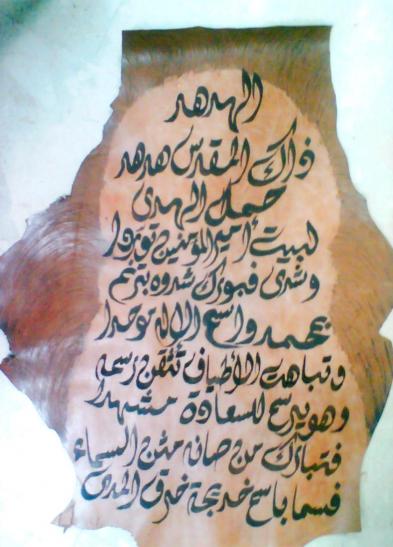 الهدهد
ذاك المقدس هدهد
حمل الهدى
لبيت أمير المؤمنين توددا
وشدى فبورك شدوه بترنم
بمحمد واسم الإله توحدا
وتباهت الأطياف تتقن رسمه
وهو يرسم للسعادة مشهدا
فتبارك من صانه من السماء
فسما باسم خديجة خرق المدى